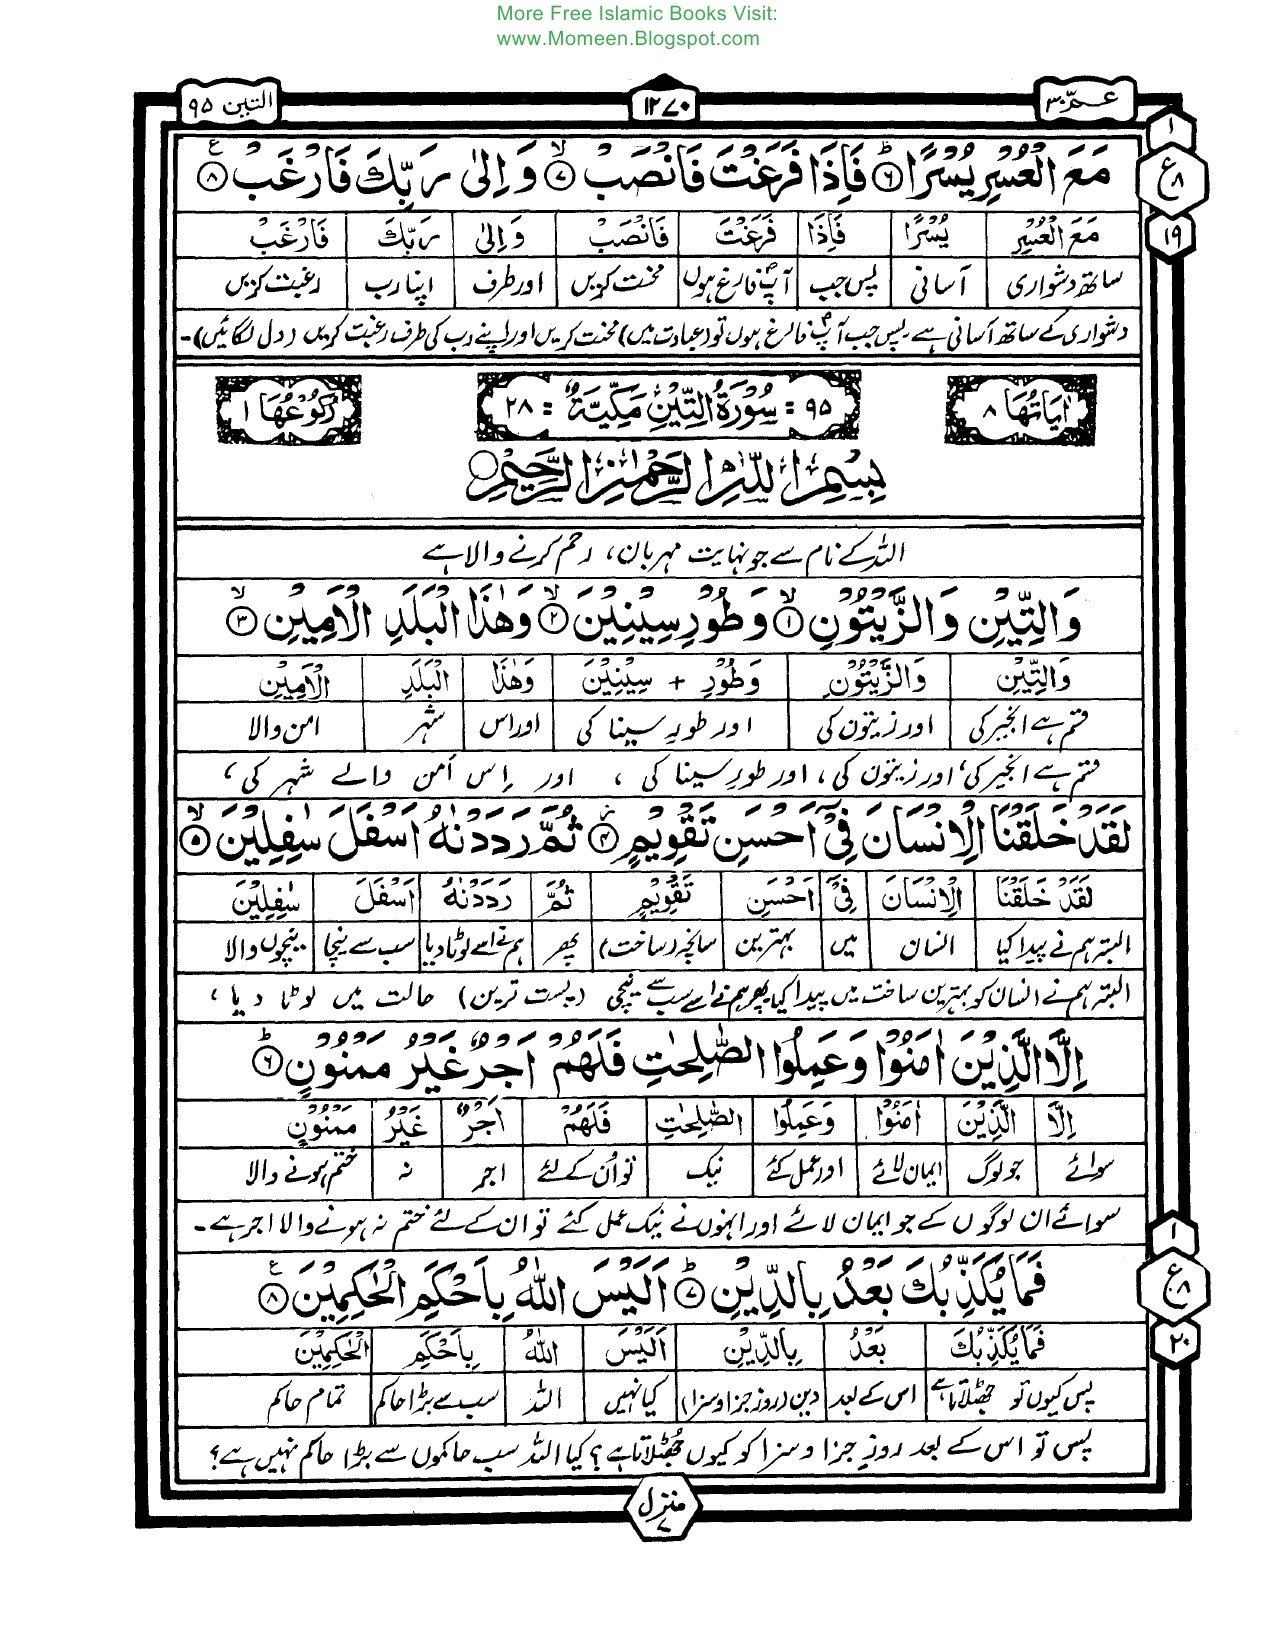 More Free Islamic Books Visit:
www.Momeen.Blogspot.com
عمّ ۳۰
۱۲۷۰
التین ۹۵
۱
ع
۸
۱۹
مَعَ الْعُسْرِ يُسْرًا ۶ؕ فَاِذَا فَرَغْتَ فَانْصَبْ ۷ۙ وَاِلٰى رَبِّكَ فَارْغَبْ ۸
مَعَ الْعُسْرِ يُسْرًا فَاِذَا فَرَغْتَ فَانْصَبْ وَاِلٰى رَبِّكَ فَارْغَبْ
ساتھ دشواری آسانی پس جب آپؐ فارغ ہوں محنت کریں اور طرف اپنا رب رغبت کریں
دشواری کے ساتھ آسانی ہے پس جب آپؐ فارغ ہوں تو (عبادت میں) محنت کریں اور اپنے رب کی طرف رغبت کریں (دل لگائیں)۔
اٰيَاتُهَا ۸
۹۵ = سُوْرَةُ التِّيْنِ مَكِّيَّةٌ = ۲۸
رُكُوْعُهَا ۱
بِسْمِ اللّٰهِ الرَّحْمٰنِ الرَّحِيْمِ
اللہ کے نام سے جو نہایت مہربان، رحم کرنے والا ہے
وَالتِّيْنِ وَالزَّيْتُوْنِ ۱ۙ وَطُوْرِ سِيْنِيْنَ ۲ۙ وَهٰذَا الْبَلَدِ الْاَمِيْنِ ۳ۙ
وَالتِّيْنِ وَالزَّيْتُوْنِ وَطُوْرِ + سِيْنِيْنَ وَهٰذَا الْبَلَدِ الْاَمِيْنِ
قسم ہے انجیر کی اور زیتون کی اور طورِ سینا کی اور اس شہر امن والا
قسم ہے انجیر کی، اور زیتون کی، اور طورِ سینا کی، اور اِس اَمن والے شہر کی،
لَقَدْ خَلَقْنَا الْاِنْسَانَ فِيْٓ اَحْسَنِ تَقْوِيْمٍ ۴ ثُمَّ رَدَدْنٰهُ اَسْفَلَ سٰفِلِيْنَ ۵ۙ
لَقَدْ خَلَقْنَا الْاِنْسَانَ فِيْٓ اَحْسَنِ تَقْوِيْمٍ ثُمَّ رَدَدْنٰهُ اَسْفَلَ سٰفِلِيْنَ
البتہ ہم نے پیدا کیا انسان میں بہترین سانچہ (ساخت) پھر ہم نے اسے لوٹا دیا سب سے نیچا نیچوں والا
البتہ ہم نے انسان کو بہترین ساخت میں پیدا کیا پھر ہم نے اسے سب سے نیچی (پست ترین) حالت میں لوٹا دیا،
اِلَّا الَّذِيْنَ اٰمَنُوْا وَعَمِلُوا الصّٰلِحٰتِ فَلَهُمْ اَجْرٌ غَيْرُ مَمْنُوْنٍ ۶ؕ
اِلَّا الَّذِيْنَ اٰمَنُوْا وَعَمِلُوا الصّٰلِحٰتِ فَلَهُمْ اَجْرٌ غَيْرُ مَمْنُوْنٍ
سوائے جو لوگ ایمان لائے اور عمل کئے نیک تو اُن کے لئے اجر نہ ختم ہونے والا
سوائے ان لوگوں کے جو ایمان لائے اور انہوں نے نیک عمل کئے تو ان کے لئے ختم نہ ہونے والا اجر ہے۔
فَمَا يُكَذِّبُكَ بَعْدُ بِالدِّيْنِ ۷ؕ اَلَيْسَ اللّٰهُ بِاَحْكَمِ الْحٰكِمِيْنَ ۸
۱
ع
۸
۲۰
فَمَا يُكَذِّبُكَ بَعْدُ بِالدِّيْنِ اَلَيْسَ اللّٰهُ بِاَحْكَمِ الْحٰكِمِيْنَ
پس کیوں تو جھٹلاتا ہے اس کے بعد دین (روز جزا و سزا) کیا نہیں اللہ سب سے بڑا حاکم تمام حاکم
پس تو اس کے بعد روزِ جزا و سزا کو کیوں جھٹلاتا ہے؟ کیا اللہ سب حاکموں سے بڑا حاکم نہیں ہے؟
منزل
۷